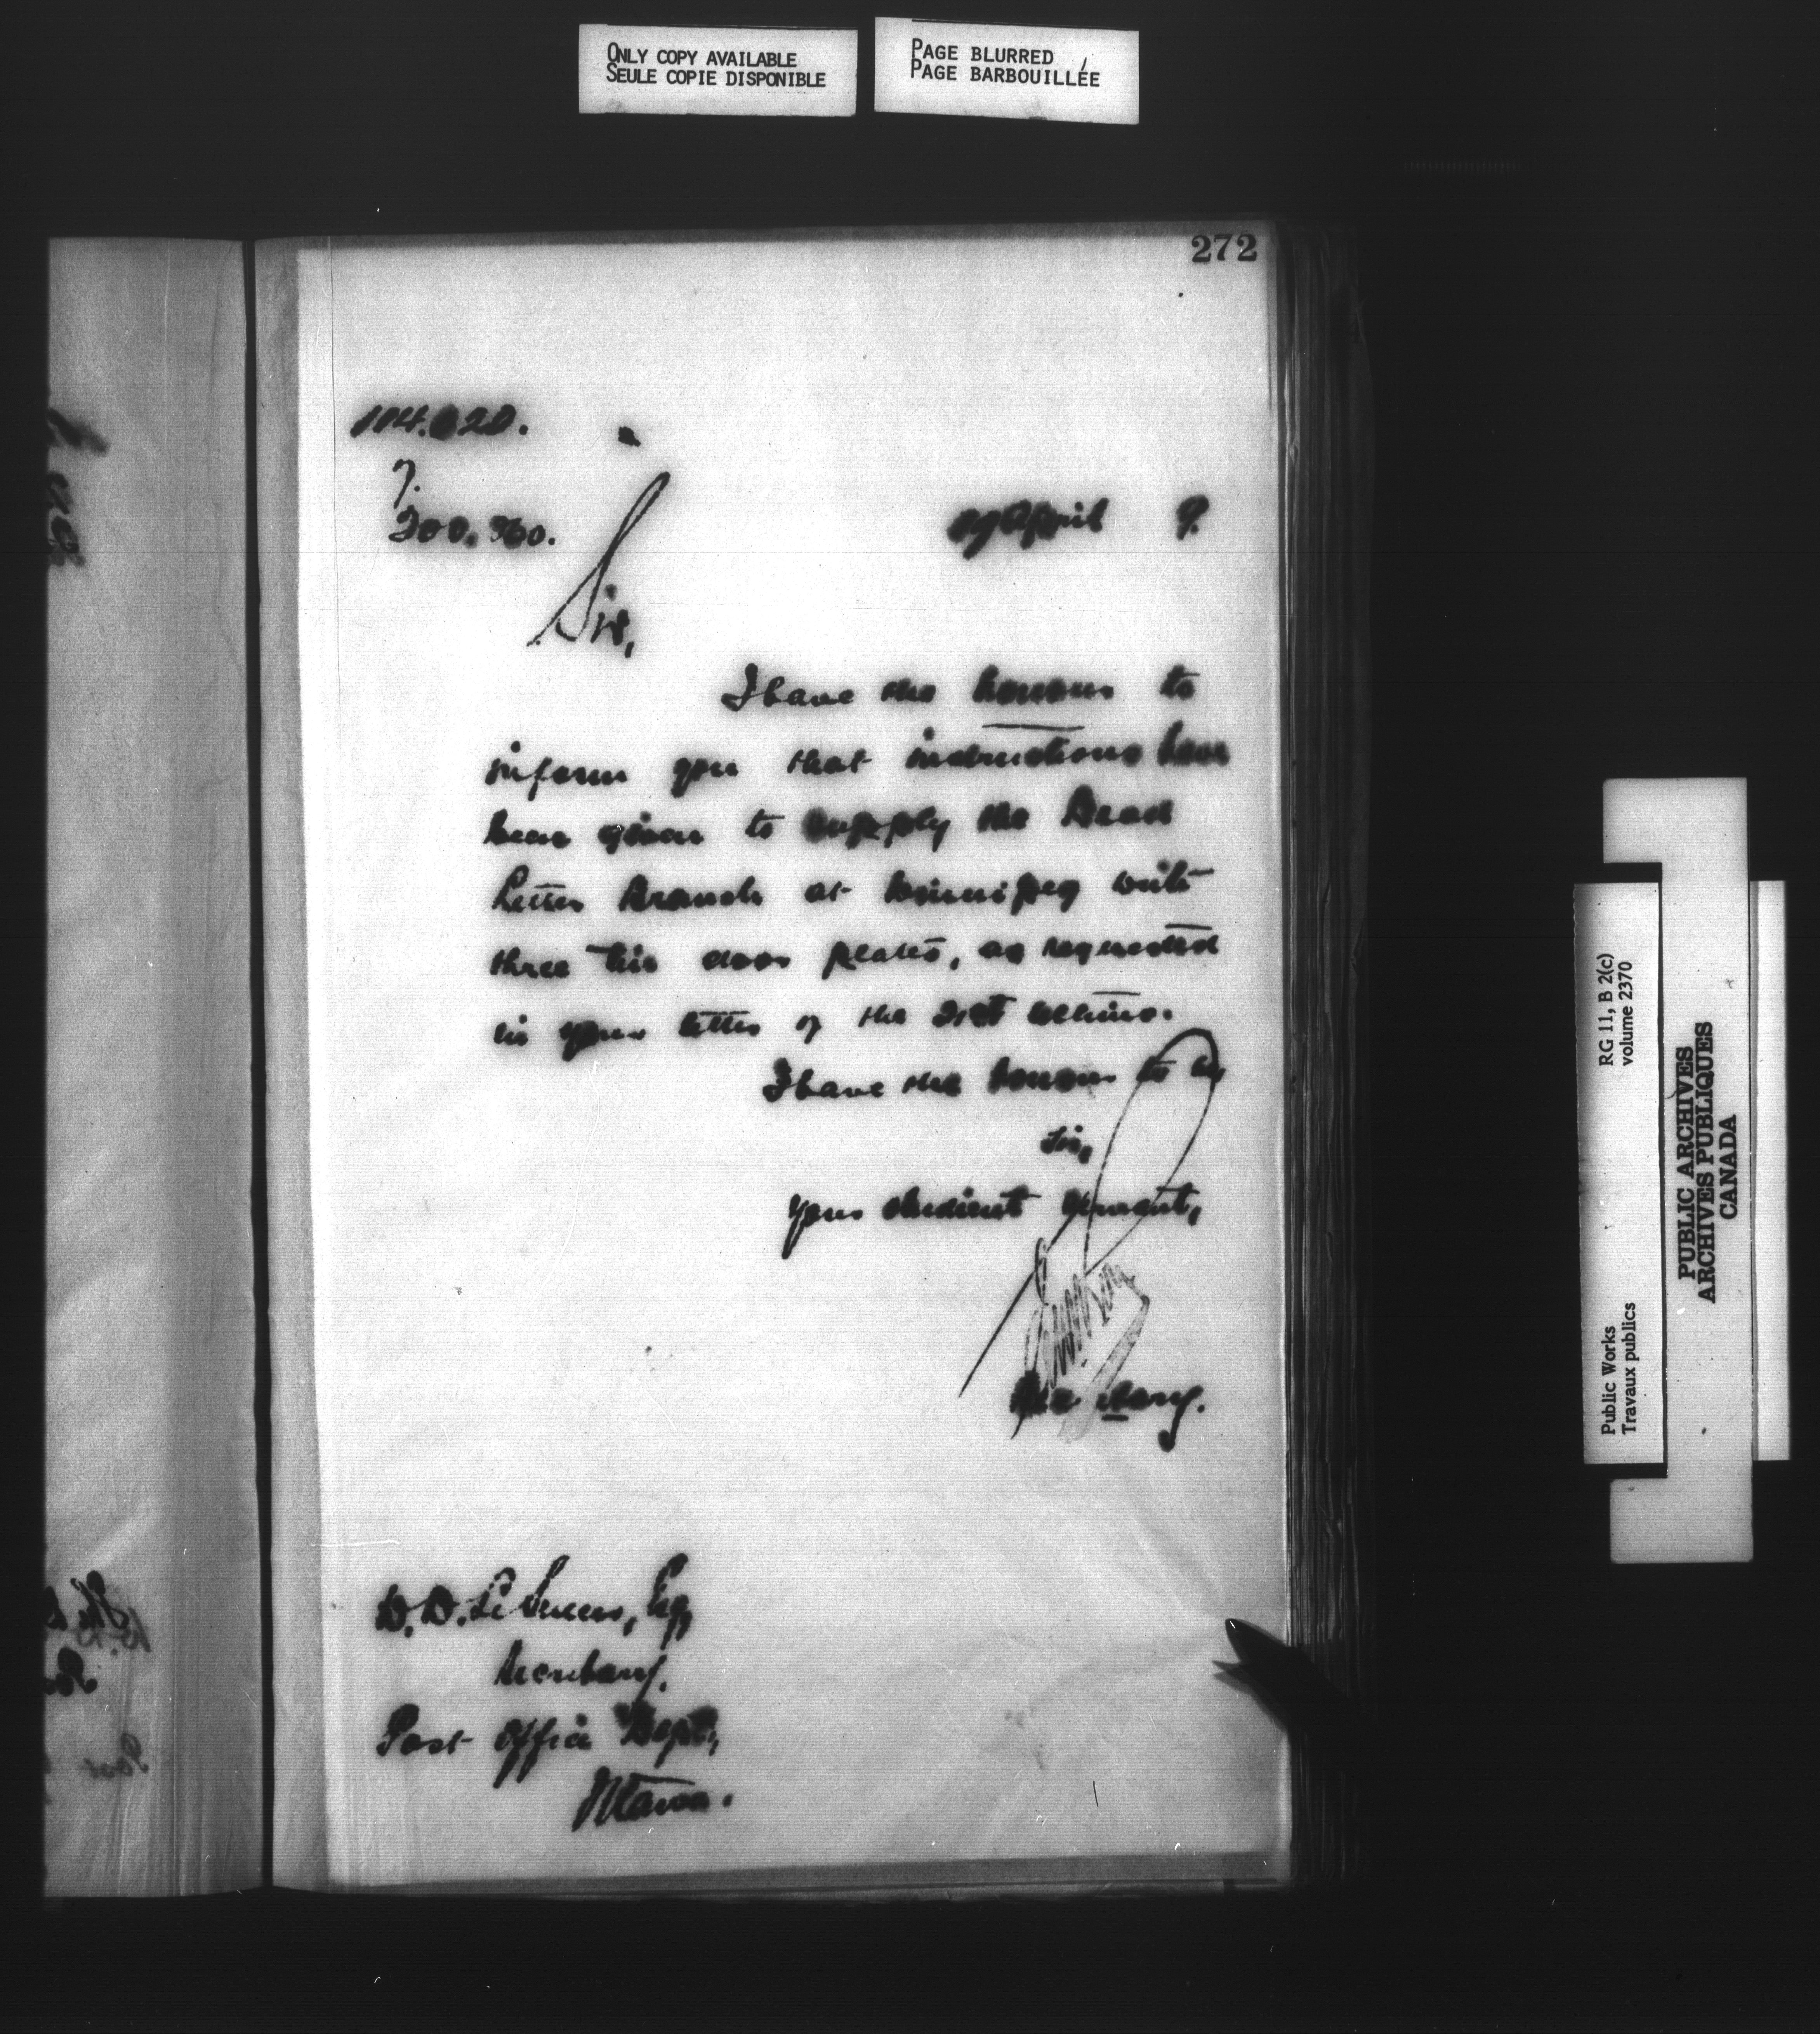 ONLY COPY AVAILABLE
SEULE COPIE DISPONIBLE
PAGE BLURRED
PAGE BARBOUILLÉE
272
7.
200.360.
April 9.
Sir,
I have the honour to
inform you that instructions have
been given to supply the Dead
Letter Branch at Winnipeg with
three tin door plates, as requested
in your letter of the 21st ultimo.
I have the honour to be
Sir,
Your obedient servant,
Secretary.
Esq,
Secretary.
Post Office Dept.,
Ottawa.
Public Works
Travaux publics
RG 11, B 2(c)
volume 2370
PUBLIC ARCHIVES
ARCHIVES PUBLIQUES
CANADA